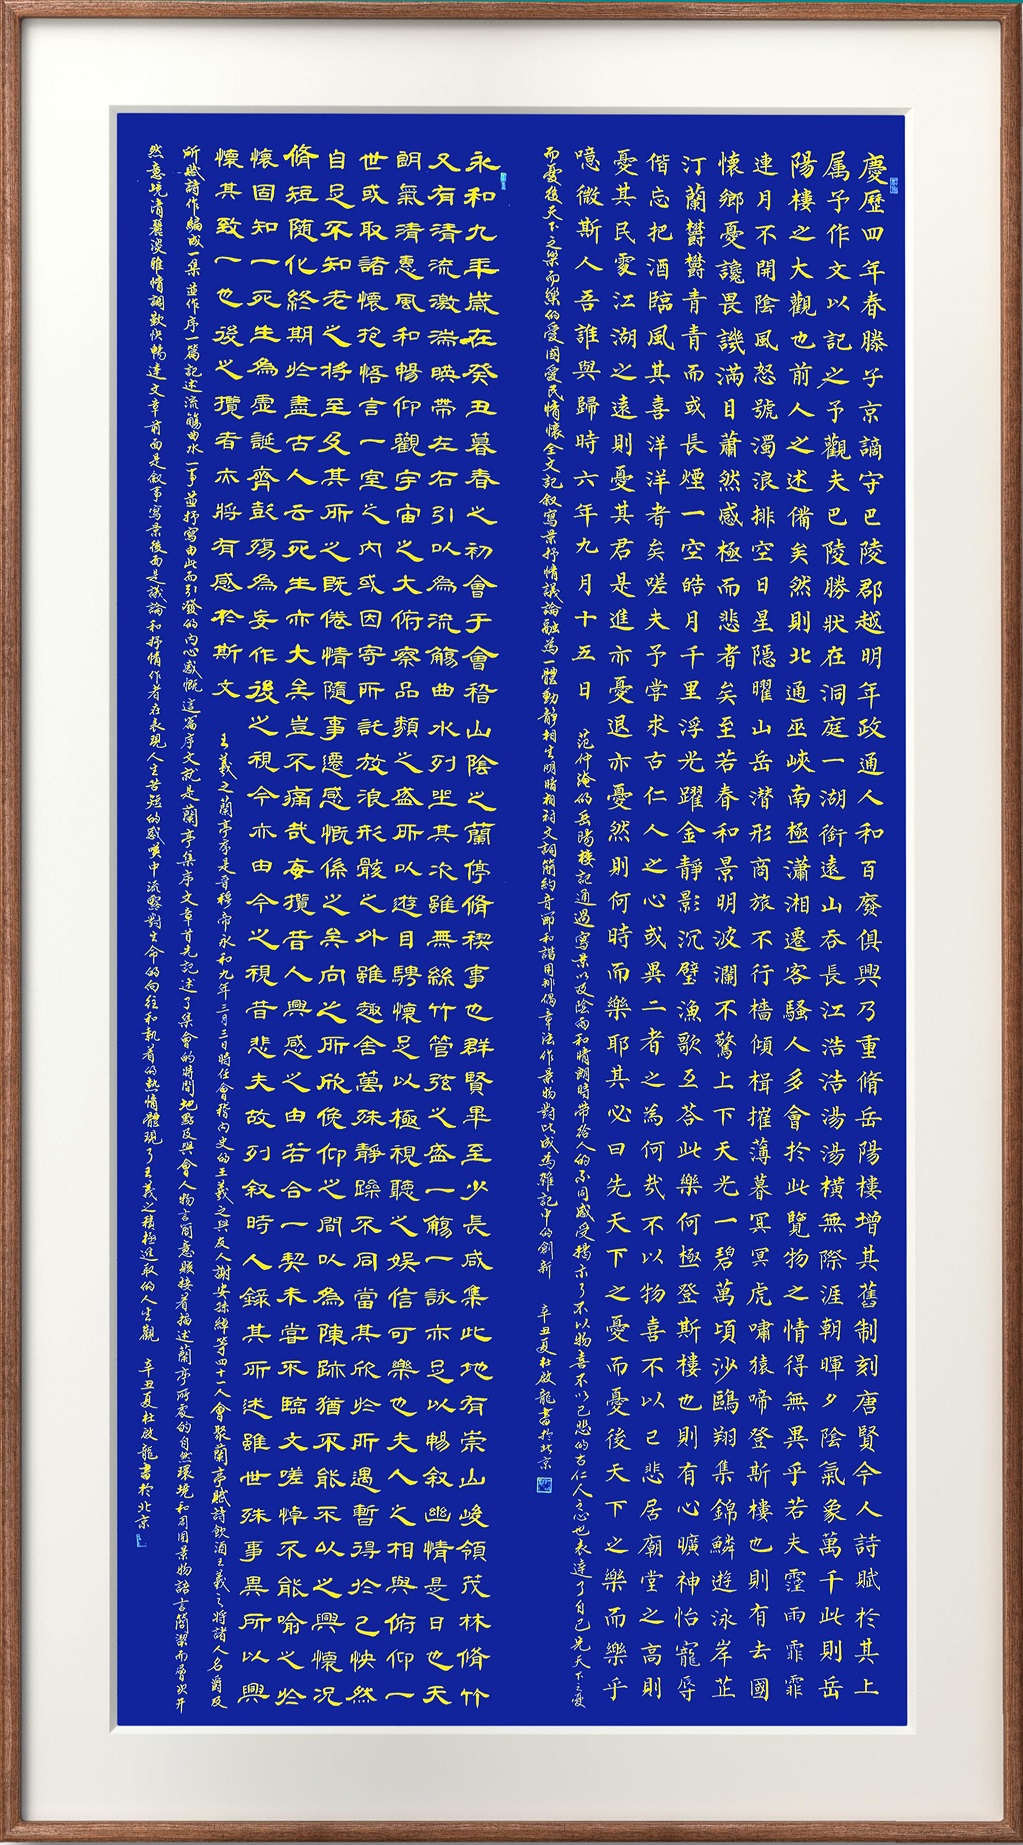 慶歷四年春滕子京謫守巴陵郡越明年政通人和百廢俱興乃重脩岳陽樓增其舊制刻唐賢今人詩賦於其上
属予作文以記之予觀夫巴陵勝狀在洞庭一湖銜遠山吞長江浩浩湯湯橫無際涯朝暉夕陰氣象萬千此則岳
陽樓之大觀也前人之述備矣然則北通巫峽南極瀟湘遷客騷人多會於此覽物之情得無異乎若夫霪雨霏霏
連月不開陰風怒號濁浪排空日星隱曜山岳潛形商旅不行檣傾楫摧薄暮冥冥虎嘯猿啼登斯樓也則有去國
懷鄉憂讒畏譏滿目蕭然感極而悲者矣至若春和景明波瀾不驚上下天光一碧萬頃沙鷗翔集錦鱗遊泳岸芷
汀蘭鬱鬱青青而或長煙一空皓月千里浮光躍金靜影沉璧漁歌互荅此樂何極登斯樓也則有心曠神怡寵辱
偕忘把酒臨風其喜洋洋者矣嗟夫予嘗求古仁人之心或異二者之為何哉不以物喜不以己悲居廟堂之高則
憂其民處江湖之遠則憂其君是進亦憂退亦憂然則何時而樂耶其必曰先天下之憂而憂後天下之樂而樂乎
噫微斯人吾誰與歸時六年九月十五日 范仲淹的岳陽樓記通過寫景以及陰雨和晴朗時帶給人的不同感受揭示了不以物喜不以己悲的古仁人之心也表達了自己先天下之憂
而憂後天下之樂而樂的愛國愛民情懷全文記敘寫景抒情議論融為一體動靜相生明暗相襯文詞簡約音節和諧用排偶章法作景物對比成為雜記中的創新 辛丑夏杜啟龍書於北京
永和九年歲在癸丑暮春之初會于會稽山陰之蘭停脩禊事也群賢畢至少長咸集此地有崇山峻領茂林脩竹
又有清流激湍映帶左右引以為流觴曲水列坐其次雖無絲竹管弦之盛一觴一詠亦足以暢敘幽情是日也天
朗氣清惠風和暢仰觀宇宙之大俯察品類之盛所以遊目騁懷足以極視聽之娛信可樂也夫人之相與俯仰一
世或取諸懷抱悟言一室之內或因寄所託放浪形骸之外雖趣舍萬殊靜躁不同當其欣於所遇暫得於己快然
自足不知老之將至及其所之既倦情隨事遷感慨係之矣向之所欣俛仰之間以為陳跡猶不能不以之興懷況
脩短隨化終期於盡古人云死生亦大矣豈不痛哉每攬昔人興感之由若合一契未嘗不臨文嗟悼不能喻之於
懷固知一死生為虛誕齊彭殤為妄作後之視今亦由今之視昔悲夫故列敘時人錄其所述雖世殊事異所以興
懷其致一也後之攬者亦將有感於斯文 王羲之蘭亭序是晉穆帝永和九年三月三日時任會稽內史的王羲之與友人謝安孫綽等四十一人會聚蘭亭賦詩飲酒王羲之將諸人名爵及
所賦詩作編成一集並作序一篇記述流觴曲水一事並抒寫由此而引發的內心感慨這篇序文就是蘭亭集序文章首先記述了集會的時間地點及與會人物言簡意賅接着描述蘭亭所處的自然環境和周圍景物語言簡潔而層次井
然意境清麗淡雅情調歡快暢達文章前面是敘事寫景後面是議論和抒情作者在表現人生苦短的感嘆中流露對生命的向往和執着的熱情體現了王羲之積極進取的人生觀 辛丑夏杜啟龍書於北京